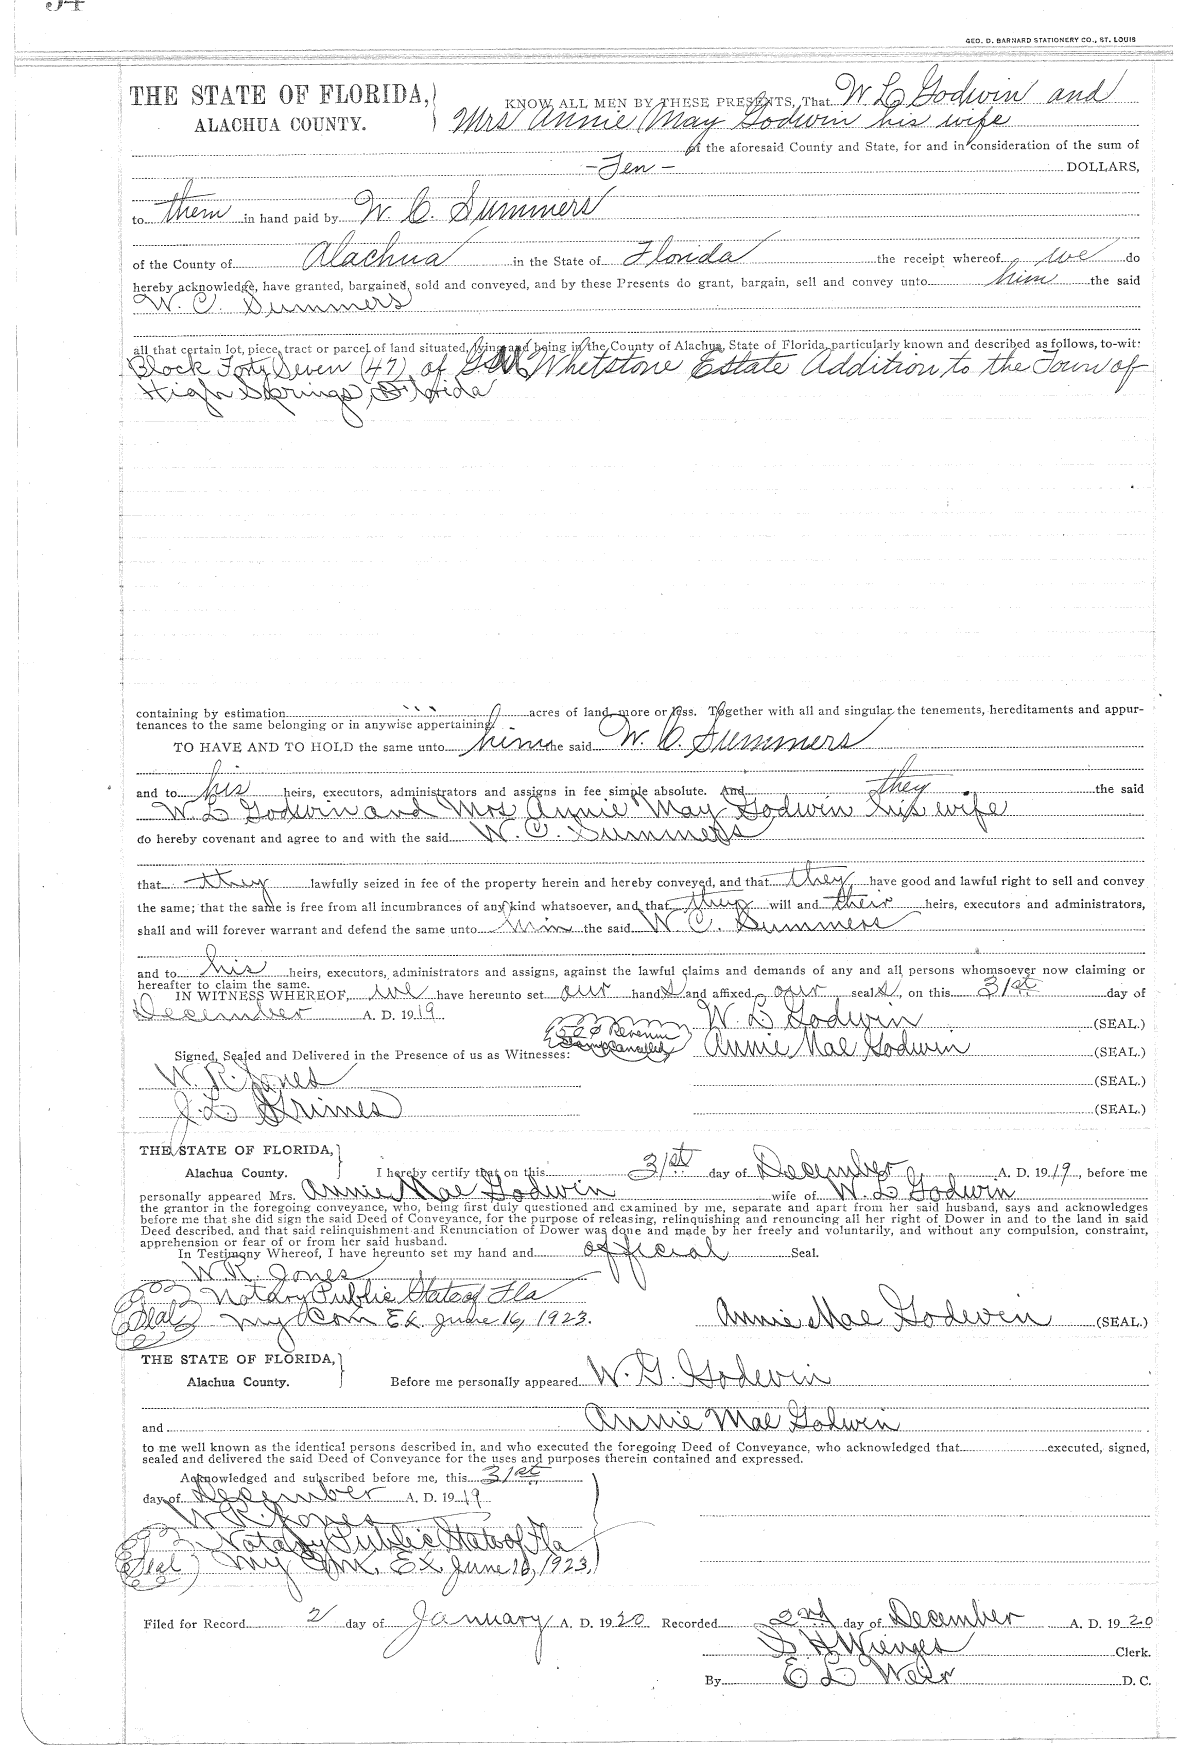 GEO. D. BARNARD STATIONERY CO., ST. LOUIS
THE STATE OF FLORIDA,
ALACHUA COUNTY.
KNOW ALL MEN BY THESE PRESENTS, That W L Godwin and
Mrs Annie May Godwin his wife
of the aforesaid County and State, for and in consideration of the sum of
- Ten - DOLLARS,
to them in hand paid by W. C. Summers
of the County of Alachua in the State of Florida the receipt whereof we do
hereby acknowledge, have granted, bargained, sold and conveyed, and by these Presents do grant, bargain, sell and convey unto him the said
W. C. Summers
all that certain lot, piece, tract or parcel of land situated, lying and being in the County of Alachua, State of Florida, particularly known and described as follows, to-wit:
Block Forty Seven (47) of Whetstone Estate Addition to the Town of
High Springs, Florida
containing by estimation acres of land, more or less. Together with all and singular the tenements, hereditaments and appur-
tenances to the same belonging or in anywise appertaining.
TO HAVE AND TO HOLD the same unto him the said W. C. Summers
and to his heirs, executors, administrators and assigns in fee simple absolute. And they the said
W. L Godwin and Mrs Annie May Godwin his wife
do hereby covenant and agree to and with the said W. C. Summers
that they lawfully seized in fee of the property herein and hereby conveyed, and that they have good and lawful right to sell and convey
the same; that the same is free from all incumbrances of any kind whatsoever, and that they will and their heirs, executors and administrators,
shall and will forever warrant and defend the same unto him the said W. C. Summers
and to his heirs, executors, administrators and assigns, against the lawful claims and demands of any and all persons whomsoever now claiming or
hereafter to claim the same.
IN WITNESS WHEREOF, we have hereunto set our hands and affixed our seals, on this 31st day of
December A. D. 1919
50¢ Revenue
Stamp Cancelled
W. L Godwin (SEAL.)
Signed, Sealed and Delivered in the Presence of us as Witnesses: Annie Mae Godwin (SEAL.)
W. R. Jones (SEAL.)
J. L Grimes (SEAL.)
THE STATE OF FLORIDA,
Alachua County. I hereby certify that on this 31st day of December A. D. 1919, before me
personally appeared Mrs. Annie Mae Godwin wife of W. L Godwin
the grantor in the foregoing conveyance, who, being first duly questioned and examined by me, separate and apart from her said husband, says and acknowledges
before me that she did sign the said Deed of Conveyance, for the purpose of releasing, relinquishing and renouncing all her right of Dower in and to the land in said
Deed described, and that said relinquishment and Renunciation of Dower was done and made by her freely and voluntarily, and without any compulsion, constraint,
apprehension or fear of or from her said husband.
In Testimony Whereof, I have hereunto set my hand and official Seal.
W. R. Jones
Notary Public State of Fla
Seal My Com Ex. June 16, 1923. Annie Mae Godwin (SEAL.)
THE STATE OF FLORIDA,
Alachua County. Before me personally appeared W. G. Godwin
and Annie Mae Godwin
to me well known as the identical persons described in, and who executed the foregoing Deed of Conveyance, who acknowledged that executed, signed,
sealed and delivered the said Deed of Conveyance for the uses and purposes therein contained and expressed.
Acknowledged and subscribed before me, this 31st
day of December A. D. 1919
W. R. Jones
Notary Public State of Fla
Seal My Com. Ex. June 16, 1923.
Filed for Record 2 day of January A. D. 1920 Recorded 2nd day of December A. D. 1920
S H Wienges Clerk.
By E L Weir D. C.